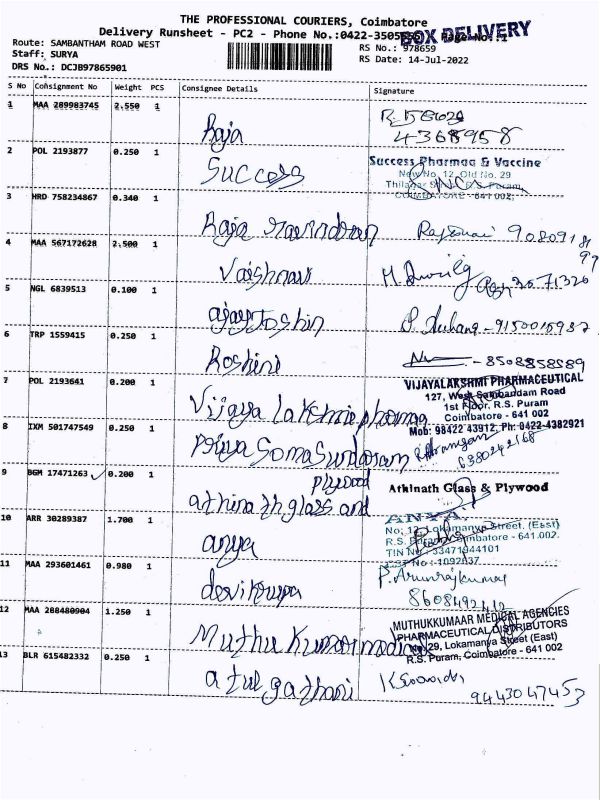 THE PROFESSIONAL COURIERS, Coimbatore
BOX DELIVERY
Delivery Runsheet - PC2 - Phone No.:0422-3505 Page No.:1
Route: SAMBANTHAM ROAD WEST
RS No.: 978659
Staff: SURYA
RS Date: 14-Jul-2022
DRS No.: DCJB97865901
S No Consignment No Weight PCS Consignee Details Signature
1 MAA 289983745 2.550 1 Raja
4368958
2 POL 2193877 0.250 1 Success
Success Pharmaa & Vaccine
New No. 12, Old No. 29
R.S. Puram,
COIMBATORE - 641 002.
3 HRD 758234867 0.340 1 Raja ravindran
4 MAA 567172628 2.500 1 Vaishnavi
5 NGL 6839513 0.100 1 ajay Joshin
6 TRP 1559415 0.250 1 Roshini
- 8508858589
7 POL 2193641 0.200 1 Vijaya lakshmi pharma
VIJAYALAKSHMI PHARMACEUTICAL
127, West Sambandam Road
1st Floor, R.S. Puram
Coimbatore - 641 002
Mob: 98422 43912, Ph: 0422-4382921
8 IXM 501747549 0.250 1 priya Somasundaram
6380242168
9 BGM 17471263 0.200 1 athinath glass and plywood
Athinath Glass & Plywood
10 ARR 30289387 1.700 1 anya
ANYA
No: 12, Lokamanya Street, (East)
R.S. Puram, Coimbatore - 641 002.
TIN No: 33471944101
11 MAA 293601461 0.980 1 devikrupa
P. Arunrajkumar
8608492412
12 MAA 288480904 1.250 1 Muthu Kumar medical
MUTHUKKUMAAR MEDICAL AGENCIES
PHARMACEUTICAL DISTRIBUTORS
No 29, Lokamanya Street (East)
R.S. Puram, Coimbatore - 641 002
13 BLR 615482332 0.250 1 atul gathani
9443047453